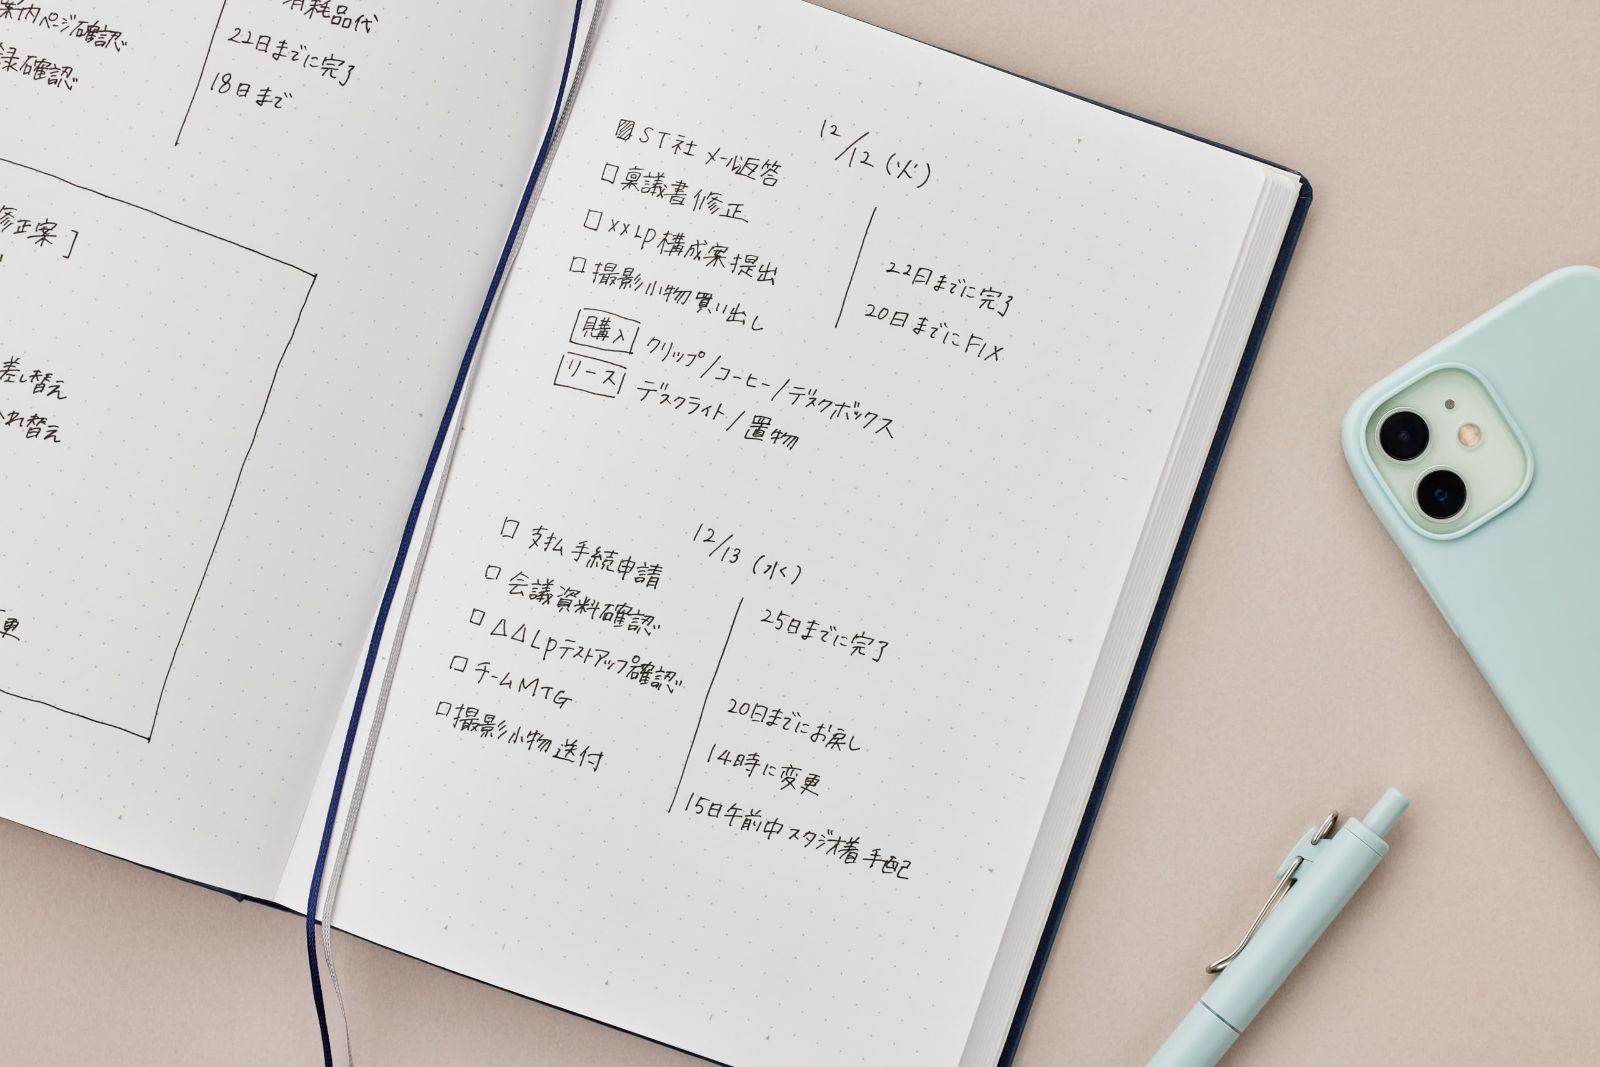 案内ページ確認
録確認
消耗品代
22日までに完了
18日まで
修正案]
差し替え
れ替え
更
12/12(火)
☑ST社 メール返答
□稟議書修正
□××LP構成案提出
□撮影小物買い出し
22日までに完了
20日までにFIX
購入 クリップ/コーヒー/デスクボックス
リース デスクライト/置物
12/13(水)
□支払手続申請
□会議資料確認
□△△LPテストアップ確認
□チームMTG
□撮影小物送付
25日までに完了
20日までにお戻し
14時に変更
15日午前中スタジオ着手配